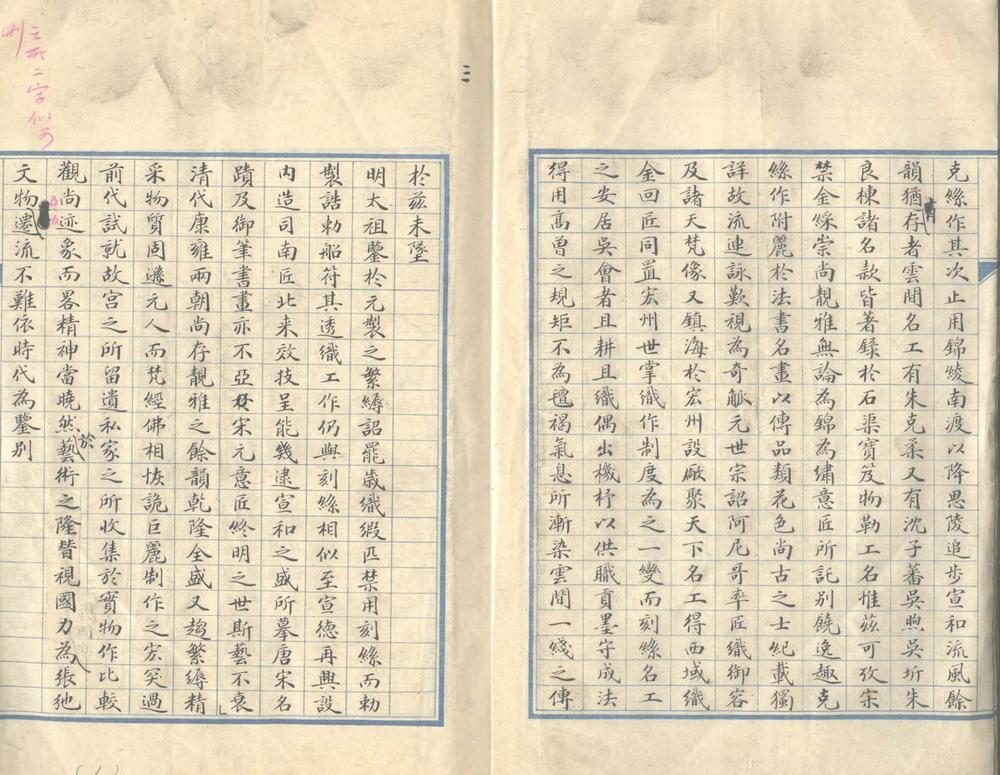 克絲作其次止用錦綾南渡以降思陵追步宣和流風餘
韻猶有存者雲間名工有朱克柔又有沈子蕃吳煦吳圻朱
良棟諸名款皆著錄於石渠寶笈物勒工名惟茲可攷宋
禁金綵崇尚靚雅無論為錦為繡意匠所託別饒逸趣克
絲作附麗於法書名畫以傳品類花色尚古之士紀載獨
詳故流連詠歎視為奇觚元世宗詔阿尼哥率匠織御容
及諸天梵像又鎮海於宏州設廠聚天下名工得西域織
金回匠同置宏州世掌織作制度為之一變而刻絲名工
之安居吳會者且耕且織偶出機杼以供職貢墨守成法
得用高曾之規矩不為氊褐氣息所漸染雲間一綫之傳
三
於茲未墜
明太祖鑒於元製之繁縟詔罷歲織緞匹禁用刻絲而勅
製誥勅船符其透織工作仍與刻絲相似至宣德再興設
内造司南匠北来效技呈能幾逮宣和之盛所摹唐宋名
蹟及御筆書畫亦不亞於宋元意匠終明之世斯藝不衰」
清代康雍兩朝尚存靚雅之餘韻乾隆全盛又趨繁縟精
采物質固遜元人而梵經佛相恢詭巨麗制作之宏突過
前代試就故宮之所留遺私家之所收集於實物作比較
觀尚迹象而畧精神當曉然於藝術之隆替視國力為張弛
文物遷流不難依時代為鑒別
之所二字似可
刪